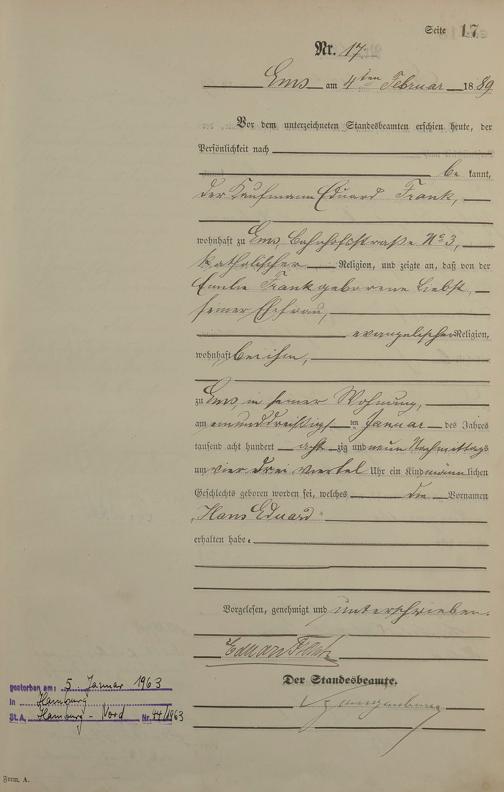 Seite 17
Nr. 17
Ems am 4ten Februar 1889
Vor dem unterzeichneten Standesbeamten erschien heute, der
Persönlichkeit nach
bekannt,
der Kaufmann Eduard Frank,
wohnhaft zu Ems, Bahnhofstraße No 3,
katholischer Religion, und zeigte an, daß von der
Emilie Frank geborene Liebst,
seiner Ehefrau,
evangelischer Religion,
wohnhaft bei ihm,
zu Ems, in seiner Wohnung,
am einunddreißigsten Januar des Jahres
tausend acht hundert achtzig und neun Nachmittags
um vier drei viertel Uhr ein Kind männlichen
Geschlechts geboren worden sei, welches die Vornamen
„Hans Eduard“
erhalten habe.
Vorgelesen, genehmigt und unterschrieben.
Eduard Frank
Der Standesbeamte.
gestorben am: 5. Januar 1963
in Hamburg
St. A. Hamburg - Nord Nr. 44/1963
Form. A.